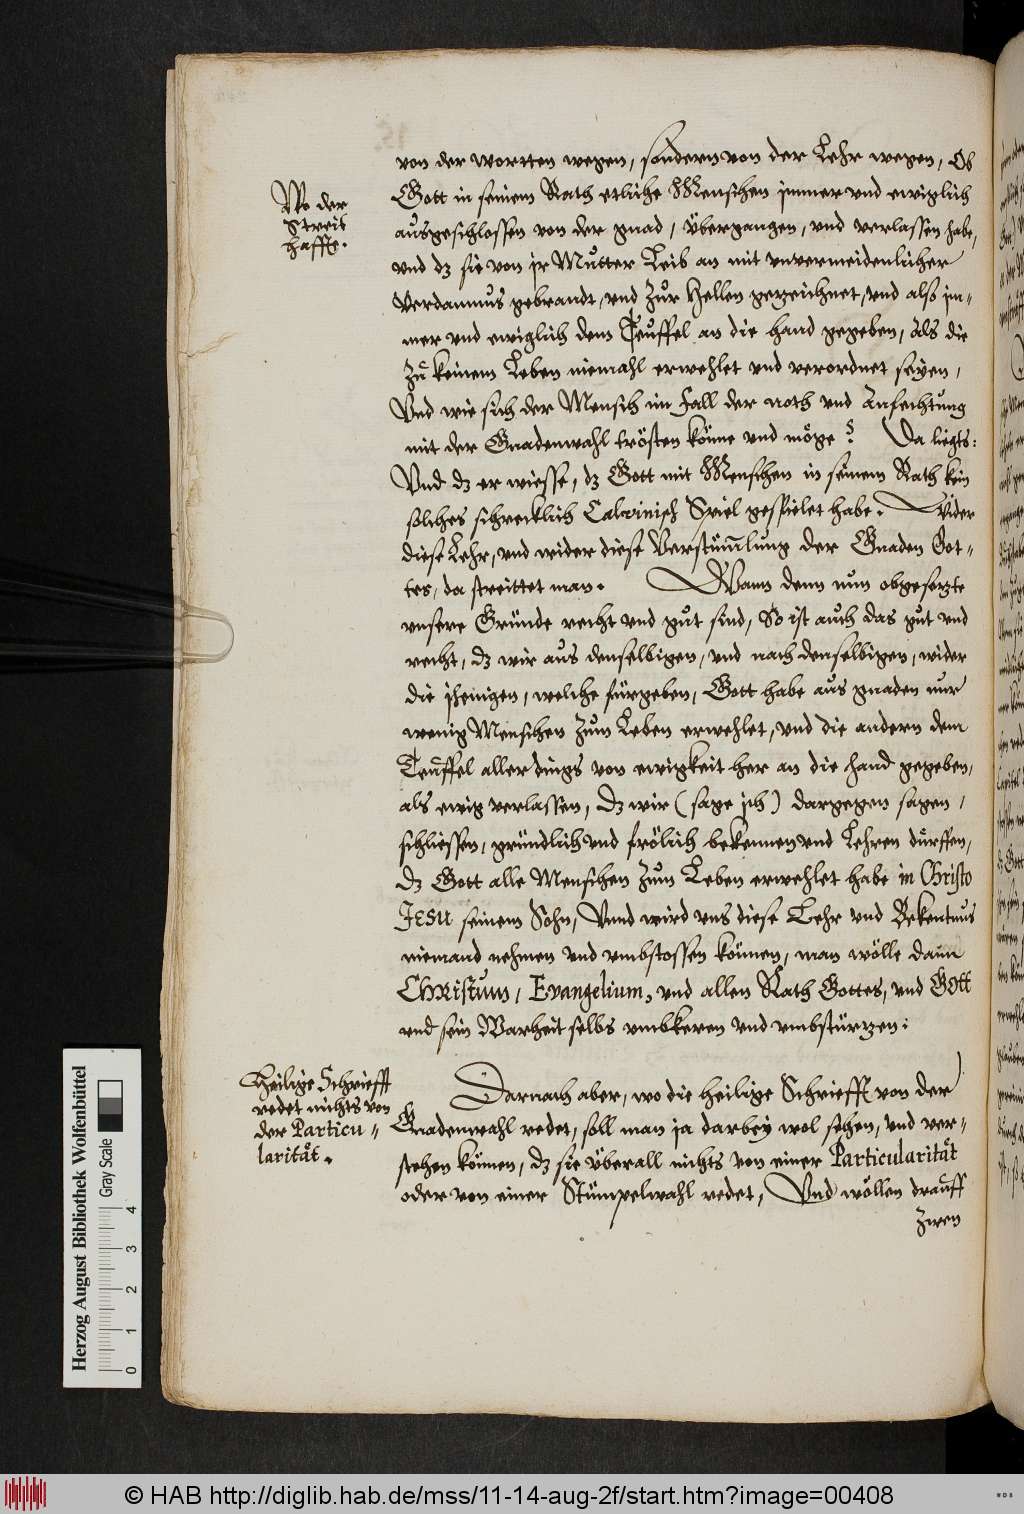 von der wortten wegen, sondern von der Lehr wegen, Ob
Wo der
Streit
haffte.
Gott in seinem Rath etliche Menschen immer vnd ewiglich
ausgeschlossen von der gnad, übergangen, vnd verlassen habe,
vnd dz sie von ir Mutter Leib an mit vnvermeidenlicher
Verdamnus gebrandt, vnd zur Hellen gezeichnet, vnd also im-
mer vnd ewiglich dem Teuffel an die hand gegeben, als die
zu keinem Leben niemahl erwehlet vnd verordnet seyen,
Vnd wie sich der Mensch im fall der noth vnd Anfechtung
mit der Gnadenwahl trösten könne vnd möge? Da ligts:
Vnd dz er wiesse, dz Gott mit Menschen in seinem Rath kein
solches schrecklich Calvinisch Spiel gespielet habe. Wider
diese Lehr, vnd wider diese Verstümlung der Gnaden Got-
tes, da streittet man. Wann denn nun obgesetzte
vnsere Gründe recht vnd gut sind, So ist auch das gut vnd
recht, dz wir aus denselbigen, vnd nach denselbigen, wider
die jhenigen, welche fürgeben, Gott habe aus gnaden nur
wenig Menschen zum Leben erwehlet, vnd die andern dem
Teuffel aller dings von ewigkeit her an die hand gegeben,
als ewig verlassen, dz wir (sage ich) dargegen sagen,
schliessen, gründlich vnd frölich bekennen vnd Lehren dürffen,
dz Gott alle Menschen zum Leben erwehlet habe in Christo
Jesu seinem Sohn, Vnnd wird vns diese Lehr vnd Bekentnus
niemand nehmen vnd vmbstossen können, man wölle dann
CHRistum, Evangelium, vnd allen Rath Gottes, vnd Gott
vnd sein Warheit selbs vmbkeren vnd vmbstürzen:
Heilige Schriefft
redet nichts von
der Particu-
larität.
Darnach aber, wo die heilige Schriefft von der
Gnadenwahl redet, soll man ja darbey wol sehen, vnd ver-
stehen können, dz sie überall nichts von einer Particularität
oder von einer Stümpelwahl redet, Vnd wöllen drauff
zwen
Herzog August Bibliothek Wolfenbüttel
Gray Scale
0 1 2 3 4
© HAB http://diglib.hab.de/mss/11-14-aug-2f/start.htm?image=00408